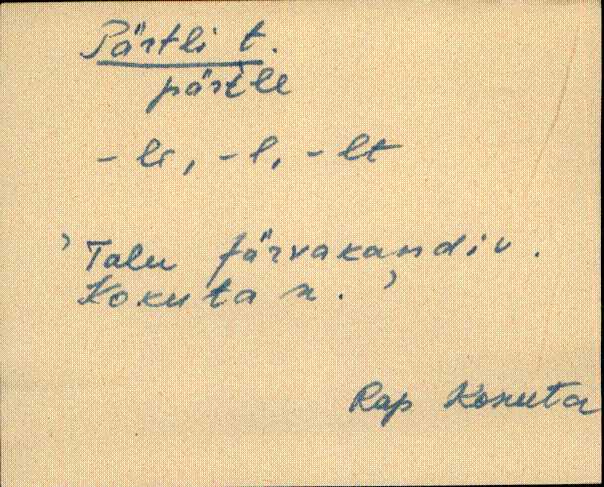 Pärtli t.
pärtle
- le, - l, - lt
' Talu Järvakandi v.
Kokuta n. '
Rap Kokuta